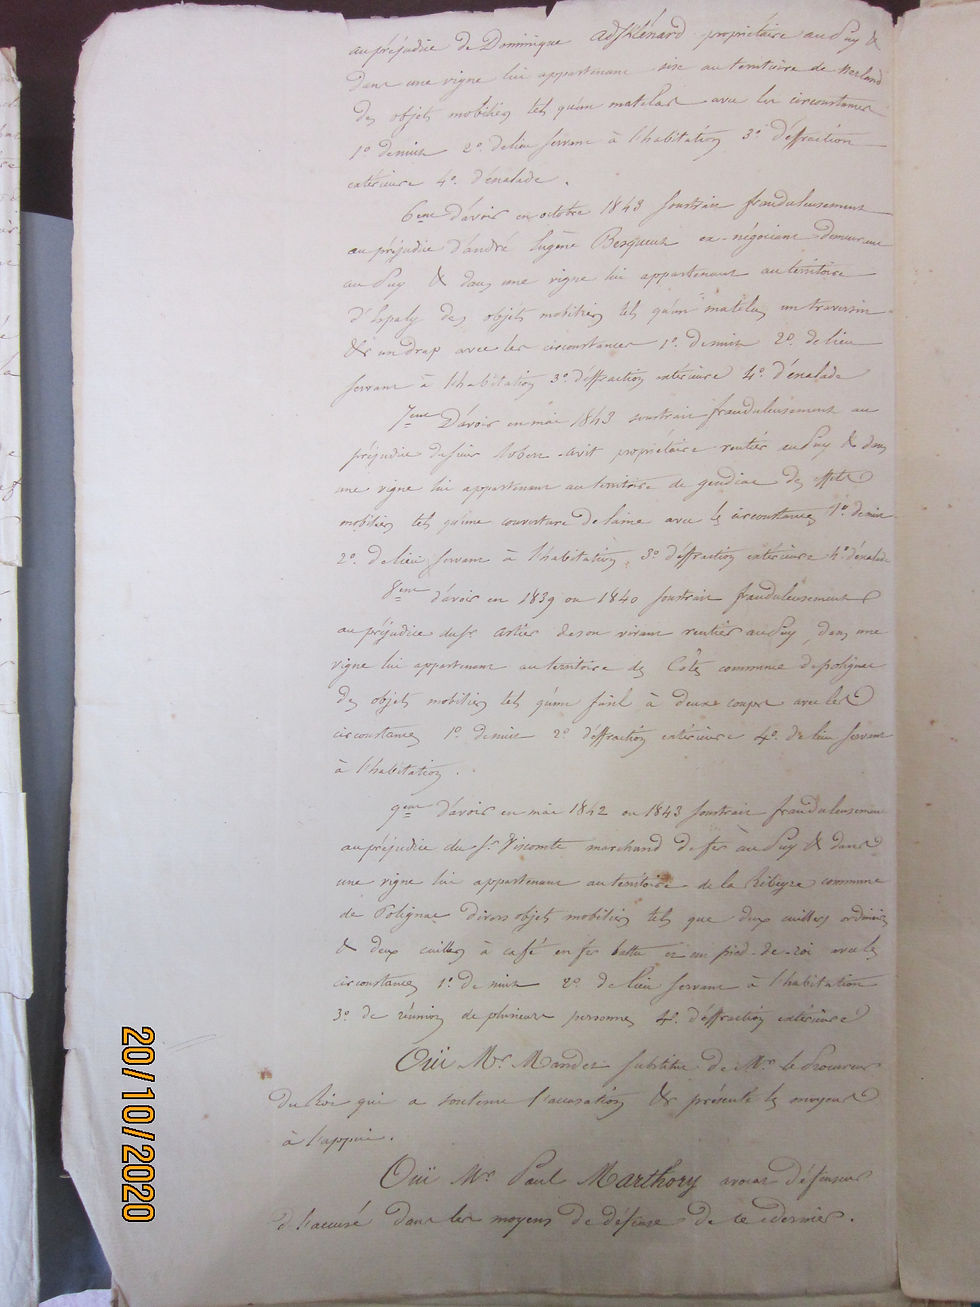 au préjudice de Dominique propriétaire au Puy &
dans une vigne lui appartenant sise au territoire de
des objets mobiliers tels qu'un matelas avec les circonstances
1º de nuit 2º de lieu servant à l'habitation 3º d'éffraction
extérieure 4º d'éscalade.
6eme D'avoir en octobre 1843 soustrait frauduleusement
au préjudice d'andré Eugène ex-négociant demeurant
au Puy & dans une vigne lui appartenant au territoire
d'Espaly des objets mobiliers tels qu'un matelas, un traversin
& un drap avec les circonstances 1º de nuit 2º de lieu
servant à l'habitation 3º d'éffraction extérieure 4º d'éscalade
7eme D'avoir en mai 1843 soustrait frauduleusement au
préjudice du sieur propriétaire rentier au Puy & dans
une vigne lui appartenant au territoire de des effets
mobiliers tels qu'une couverture de laine avec les circonstances 1º de nuit
2º de lieu servant à l'habitation, 3º d'éffraction extérieure 4º d'éscalade
8eme d'avoir en 1839 ou 1840 soustrait frauduleusement
au préjudice du sr de son vivant rentier au Puy, dans une
vigne lui appartenant au territoire des Côtes commune de polignac
des objets mobiliers tels qu'un fusil à deux coups avec les
circonstances 1º de nuit 2º d'éffraction extérieure 4º de lieu servant
à l'habitation.
9eme d'avoir en mai 1842 ou 1843 soustrait frauduleusement
au préjudice du sr Viscomte marchand de fer au Puy & dans
une vigne lui appartenant au territoire de la Ribeyre commune
de Polignac divers objets mobiliers tels que deux cuillers ordinaires
& deux cuillers à café en fer battu et un pied-de-roi avec les
circonstances 1º de nuit 2º de lieu servant à l'habitation
3º de réunion de plusieurs personnes 4º d'éffraction extérieure
Ouï Mr. Mandet substitut de Mr. le Procureur
du Roi qui a soutenu l'accusation & présenté les moyens
à l'appui.
Ouï Mr. Paul Marthory avocat défenseur
d l'accusé dans les moyens de défense de ce dernier.
20/10/2020